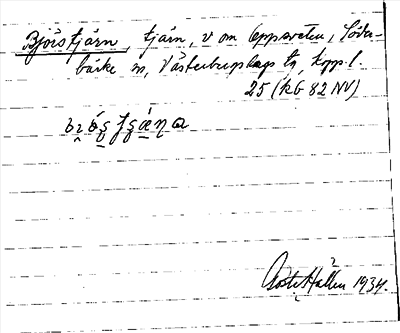 Björstjärn, tjärn, v om Oppsveten, Söder-
bärke sn, Västerbergslags tg, Kppl.
25 (KG 82 NV)
Gösta Hallén 1934.